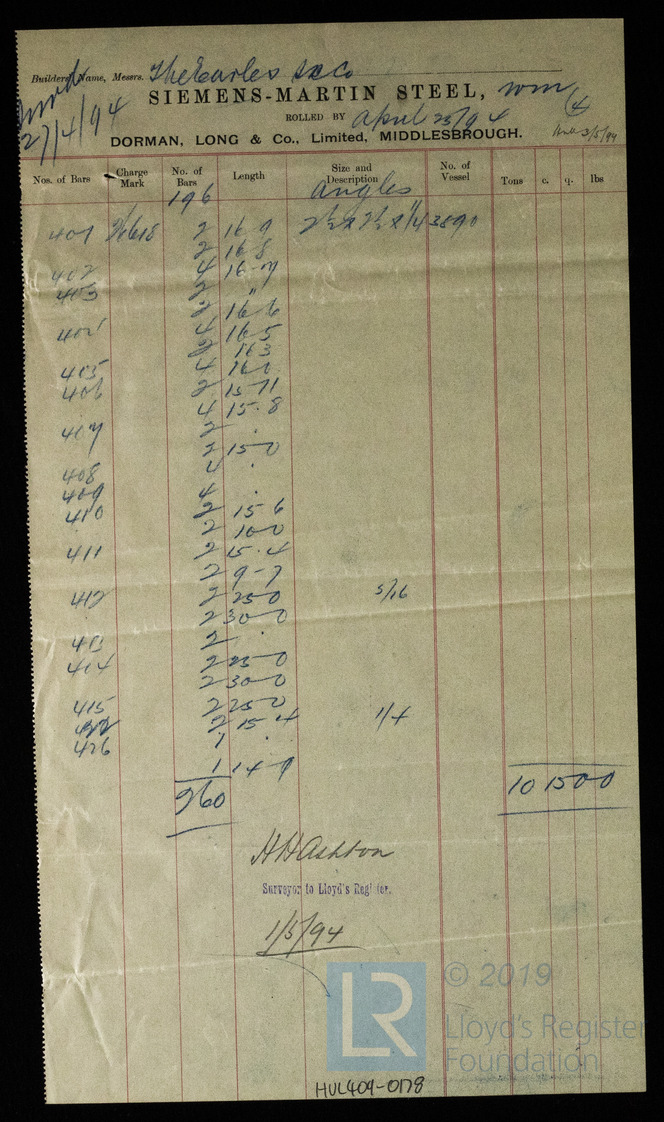 Builders Name, Messrs. The Earles S&Co
27/4/94
SIEMENS-MARTIN STEEL,
ROLLED BY April 25/94
DORMAN, LONG & Co., Limited, MIDDLESBROUGH.
3/5/94
Nos. of Bars Charge Mark No. of Bars Length Size and Description No. of Vessel Tons c. q. lbs
196 Angles
401 2 16 9 2½ x 2½ x 1/4 3890
2 16 8
402 4 16-7
403 2 "
2 16 6
404 4 16 5
2 16 3
405 4 16 0
406 2 15 11
4 15.8
407 2 .
2 15 0
408 4 .
409 4 .
410 2 15 6
2 10 0
411 2 15.4
2 9-7
412 2 25 0 5/16
2 30 0
413 2 .
414 2 25 0
2 30 0
415 2 25 0
2 15 4 1/4
426 1 .
1 14 9
260 10 15 0 0
H H Ashton
Surveyor to Lloyd's Register.
1/5/94
LR
© 2019
Lloyd's Register
Foundation
HUL409-0178